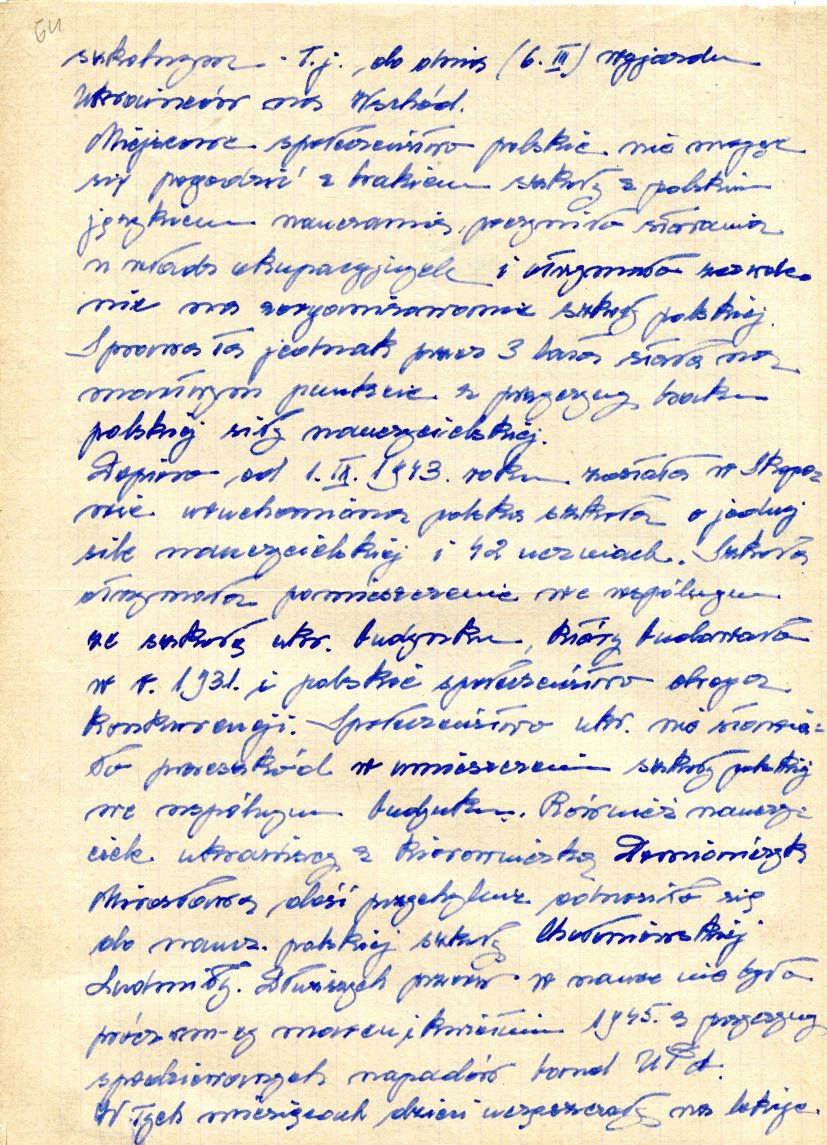 64
szkolnym - t.j. do dnia (6. III) wyjazdu
Ukraińców na Wschód.
Miejscowe społeczeństwo polskie nie mogąc
się pogodzić z brakiem szkoły z polskim
językiem nauczania, poczyniło starania
u władz okupacyjnych i otrzymało zezwole-
nie na zorganizowanie szkoły polskiej.
Sprawa ta jednak przez 3 lata stała na
martwym punkcie z przyczyny braku
polskiej siły nauczycielskiej.
Dopiero od 1. IX. 1943. roku została w
nie uruchomiona polska szkoła o jednej
sile nauczycielskiej i 42 uczniach. Szkoła
otrzymała pomieszczenie we wspólnym
ze szkołą ukr. budynku, który budowało
w r. 1931. i polskie społeczeństwo drogą
konkurencji. Społeczeństwo ukr. nie stawia=
ło przeszkód w umieszczeniu szkoły polskiej
we wspólnym budynku. Również nauczy-
ciele ukraińscy z kierowniczką
Mirosławą dość przychylnie odnosili się
do naucz. polskiej szkoły
Ludmiły. Dłuższych przerw w nauce nie było
prócz m-cy marcu i kwietniu 1945. z przyczyny
spodziewanych napadów band UPA.
W tych miesiącach dzieci uczęszczały na lekcje.